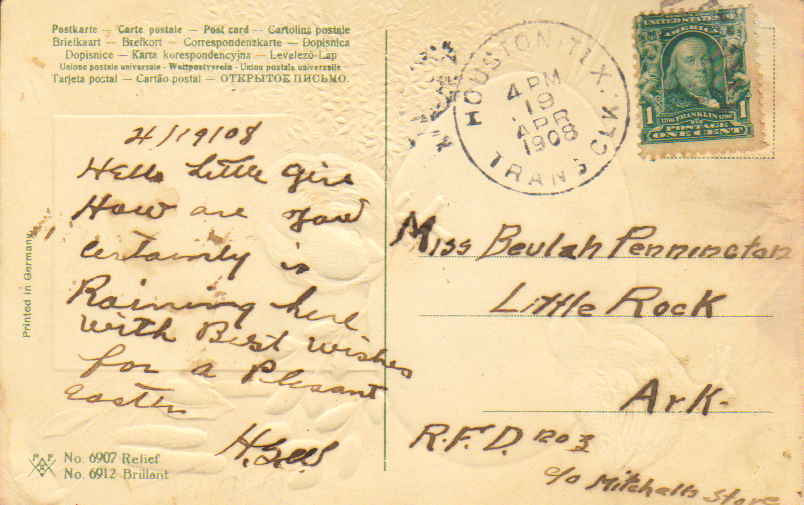 Postkarte — Carte postale — Post card — Cartolina postale
Briefkaart — Brefkort — Correspondenzkarte — Dopisnica
Dopisnice — Karta korespondencyjna — Levelező-Lap
Unione postale universale - Weltpostverein - Union postale universelle
Tarjeta postal — Cartão postal — ОТКРЫТОЕ ПИСЬМО.
4/19/08
Hello Little Girl
How are you
certainly is
Raining here
with Best wishes
for a Plesant
Easter
Printed in Germany
No. 6907 Relief
No. 6912 Brillant
HOUSTON, TEX.
4 PM
19
APR
1908
TRANS CLK
UNITED STATES OF
AMERICA
FRANKLIN
POSTAGE
1 ONE CENT 1
Miss Beulah Pennington
Little Rock
Ark-
R.F.D. no 3
c/o Mitchells Store